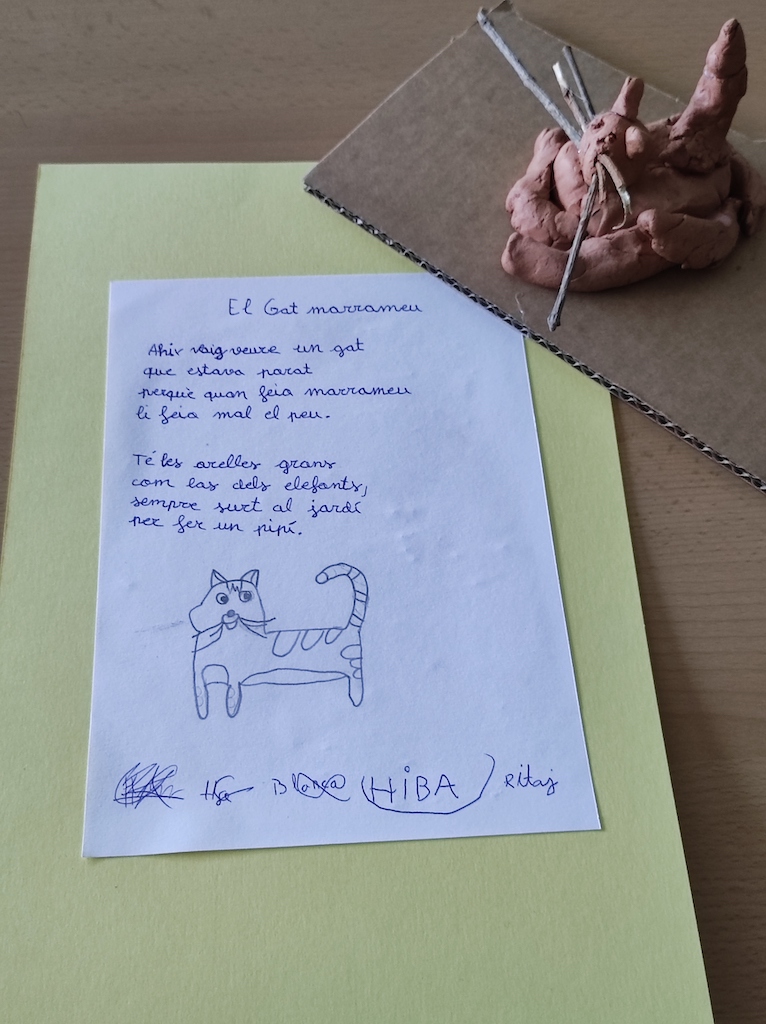 El Gat marrameu
Ahir vaig veure un gat
que estava parat
perquè quan feia marrameu
li feia mal el peu.
Té les orelles grans
com las dels elefants,
sempre surt al jardí
per fer un pipí.
Blanca HiBA Ritaj